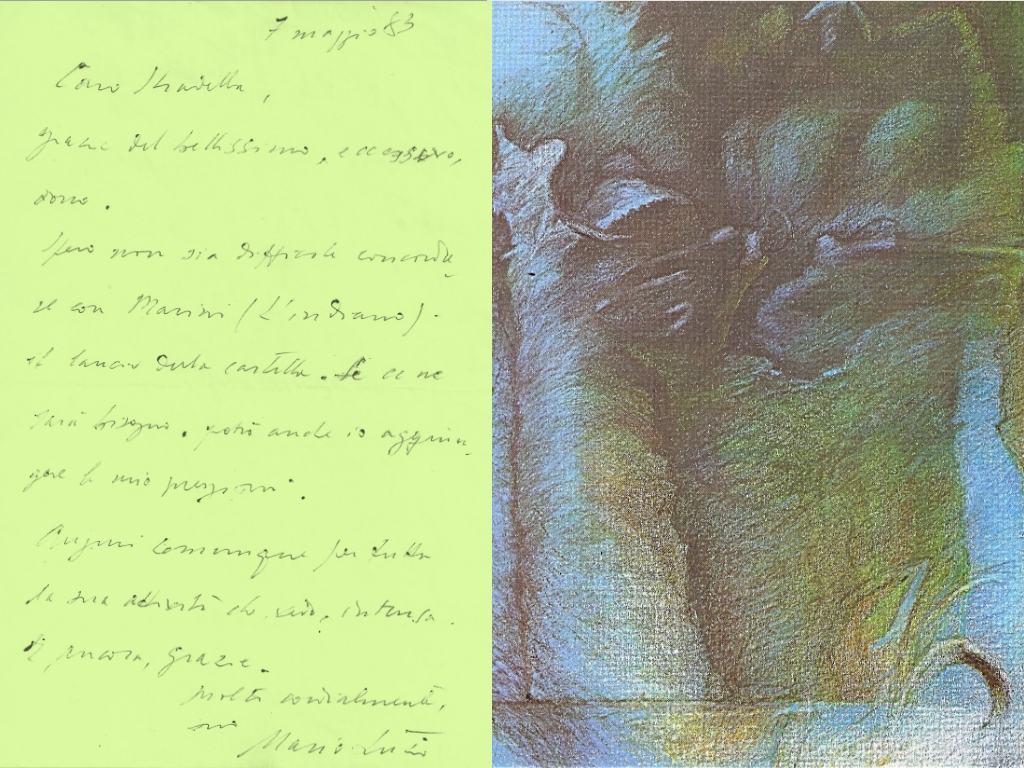 7 maggio 83
Caro Stradella,
grazie del bellissimo, e
dono.
Spero non sia difficile concorda_
re con Marini (L'indiano).
il lancio della cartella. Se ce ne
sarà bisogno, potrò anch io aggiun_
gere le mie pressioni.
Auguri comunque per tutta
la sua attività che vedo, intensa.
E ancora, grazie.
molto cordialmente,
suo
Mario Luzi